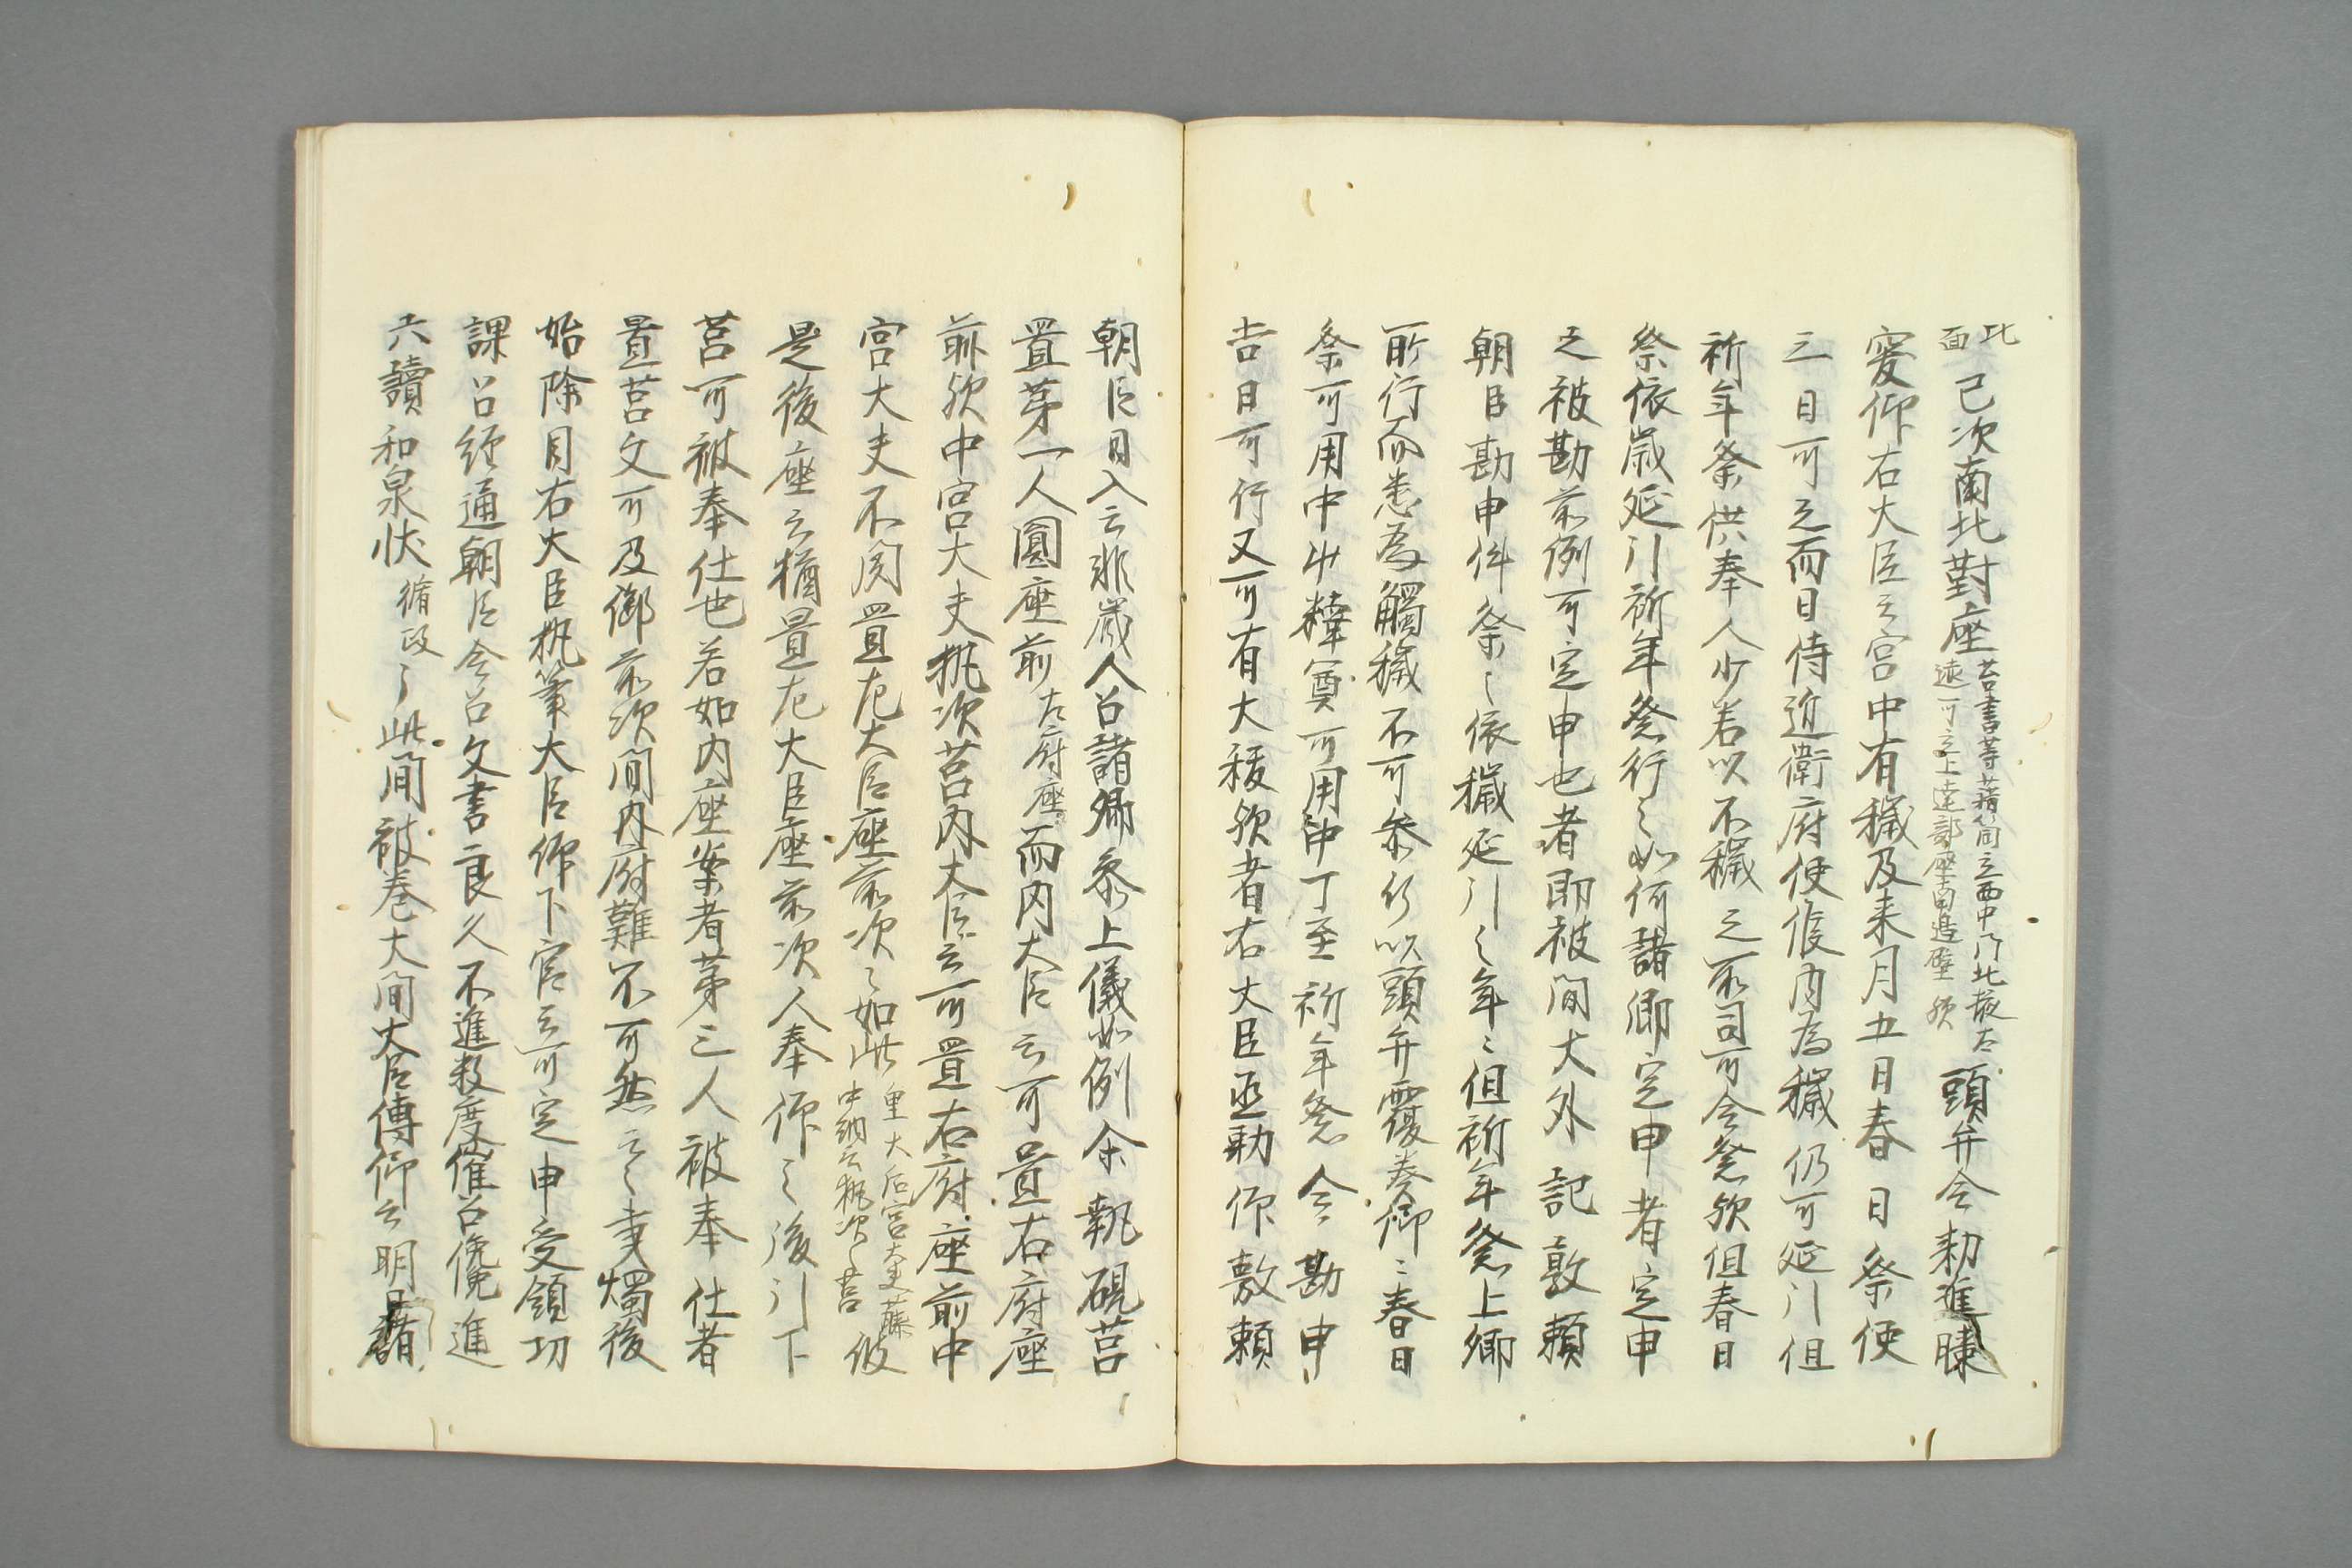 北面已次南北對座苔書等藉筒立西中门北掖右遠可立上達部座南邉壁欤頭弁令勅進膝
突仰右大臣云宮中有穢及来月五日春日祭使
立日可立而日侍近衛府使候内為穢仍可延引但
祈年祭供奉人少若以不穢之所司可令祭欤但春日
祭依歳延引祈年祭行之如何諸卿定申者定申
之被勘前例可定申也者即被間大外記敦頼
朝臣勘申件祭々依穢延引之年々但祈年祭上卿
所行而悉為觸穢不可参行以頭弁覆奏仰々春日
祭可用中卄韓冥可用中丁至祈年祭令勘申
吉日可行又可有大祓欤者右大臣亟勅仰敷頼
朝臣日入云非歳人召諸卿参上儀如例余執硯莒
置苐一人圓座前左府座而内大臣云可置右府座
前欤中宮大夫執次莒内大臣云可置右府座前中
宮大夫不関置左大臣座前次々如此皇大后宮大夫藤中納言執次々莒彼
是後座云猶置左大臣座前次人奉仰々後引下
莒可被奉仕也若如内座案者苐三人被奉仕者
置莒文可及御前次間内府難不可然云々秉燭後
始除目右大臣執筆大臣仰下官云可定申受領功
課召經通朝臣令召文書良久不進数度催召儳進
六讀和泉状脩改了此間被巻大間大臣傳仰云明日諸